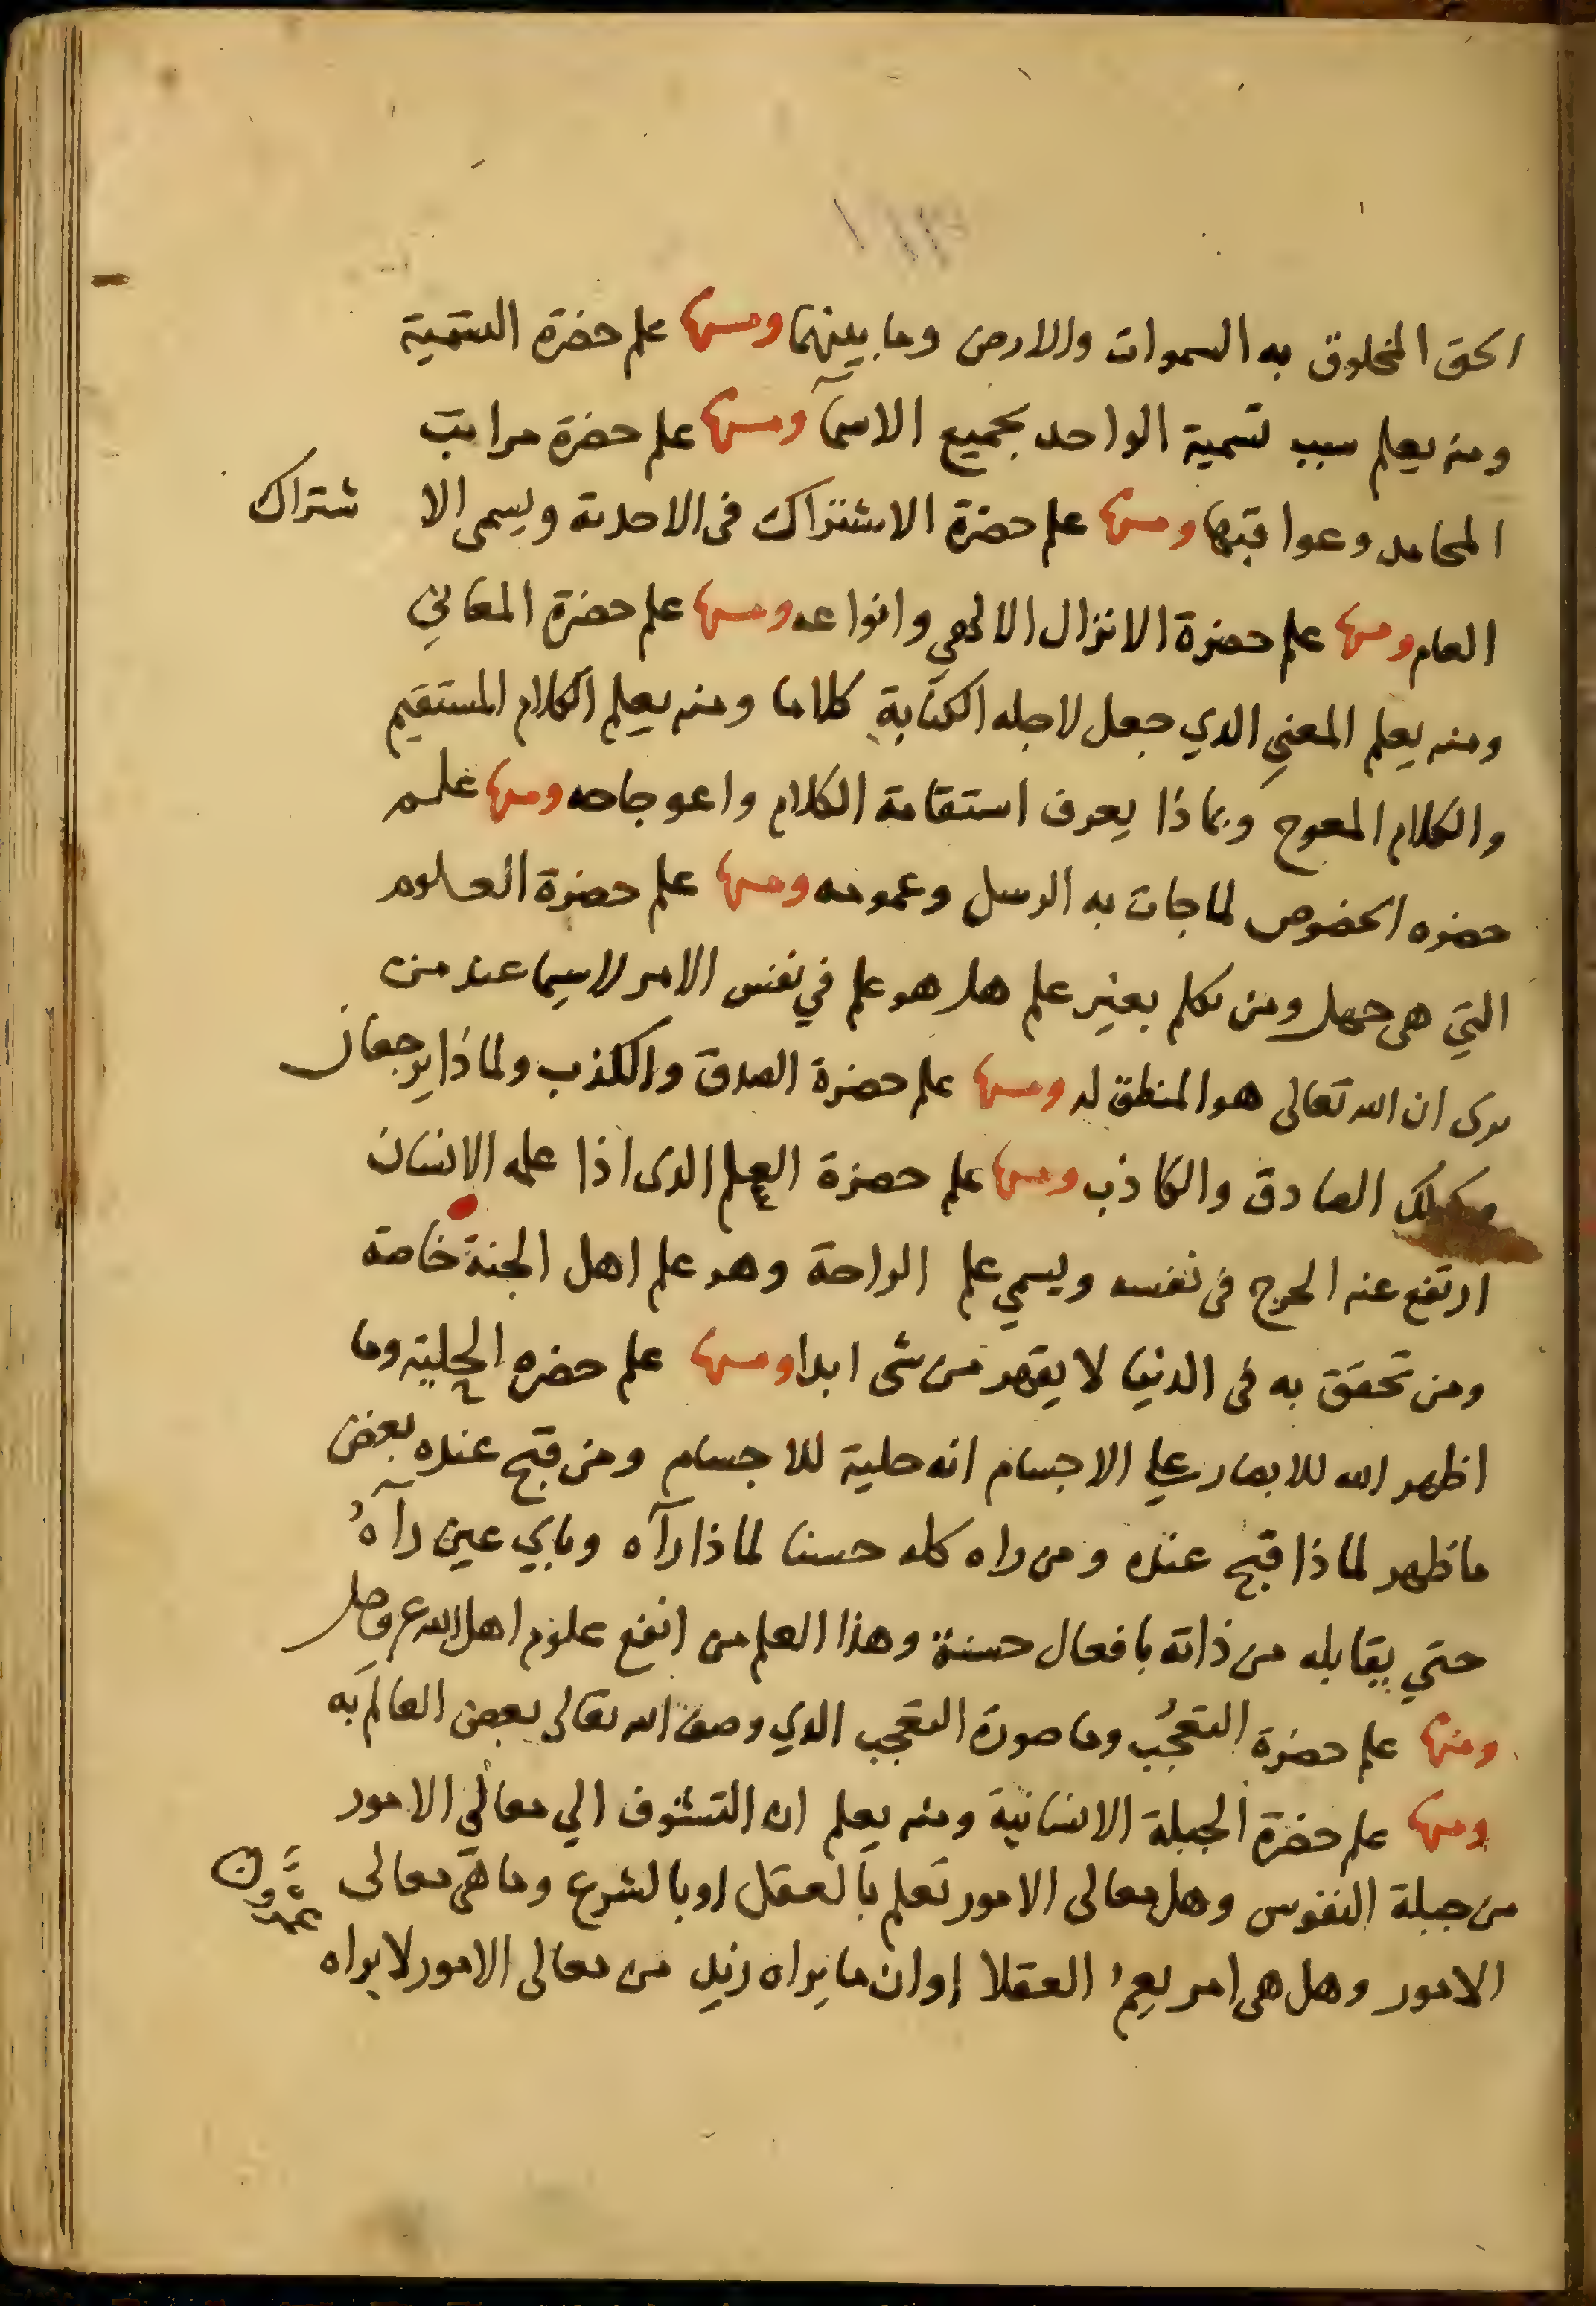 الحق المخلوق به السموات والارض وما بينهما ومنها علم حضرة التسمية
ومنه يعلم سبب تسمية الواحد بجميع الاسمآ ومنها علم حضرة مراتب
المحامد وعواقبها ومنها علم حضرة الاشتراك فى الاحدية ويسمى الا شتراك
العام ومنها علم حضرة الانزال الالهي وانواعه ومنها علم حضرة المعاني
ومنه يعلم المعني الذي جعل لاجله الكتابة كلاما ومنه يعلم الكلام المستقيم
والكلام المعوج وبماذا يعرف استقامة الكلام واعوجاجه ومنها علم
حضره الخصوص لما جات به الرسل وعمومه ومنها علم حضرة العلوم
التي هى جهل ومن تكلم بغير علم هل هو علم في نفس الامر لاسيما عند من
يرى ان الله تعالى هو المنطق له ومنها علم حضرة الصدق والكذب ولماذا يرجعان
وكذلك الصادق والكاذب ومنها علم حضرة العلم الذى اذا علمه الانسان
ارتفع عنه الحرج فى نفسه ويسمي علم الراحة وهو علم اهل الجنة خاصة
ومن تحقق به فى الدنيا لا يقهر من شى ابدا ومنها علم حضره الحلية وما
اظهر الله للابصار علي الاجسام انه حلية للاجسام ومن قبح عنده بعض
ما ظهر لماذا قبح عنده ومن راه كله حسنا لماذا رآه وباي عين رآهُ
حتي يقابله من ذاته بافعال حسنة وهذا العلم من انفع علوم اهل الله عز وجل
ومنها علم حضرة التعجُب وما صورة التعجب الذي وصف الله تعالى بعض العالم به
ومنها علم حضرة الجبلة الانسانية ومنه يعلم ان التشوف الي معالى الامور
من جبلة النفوس وهل معالى الامور تعلم بالعقل او بالشرع وما هى معالى
الامور وهل هى امر يعمُ العقلا او ان ما يراه زيد من معالى الامور لا يراه